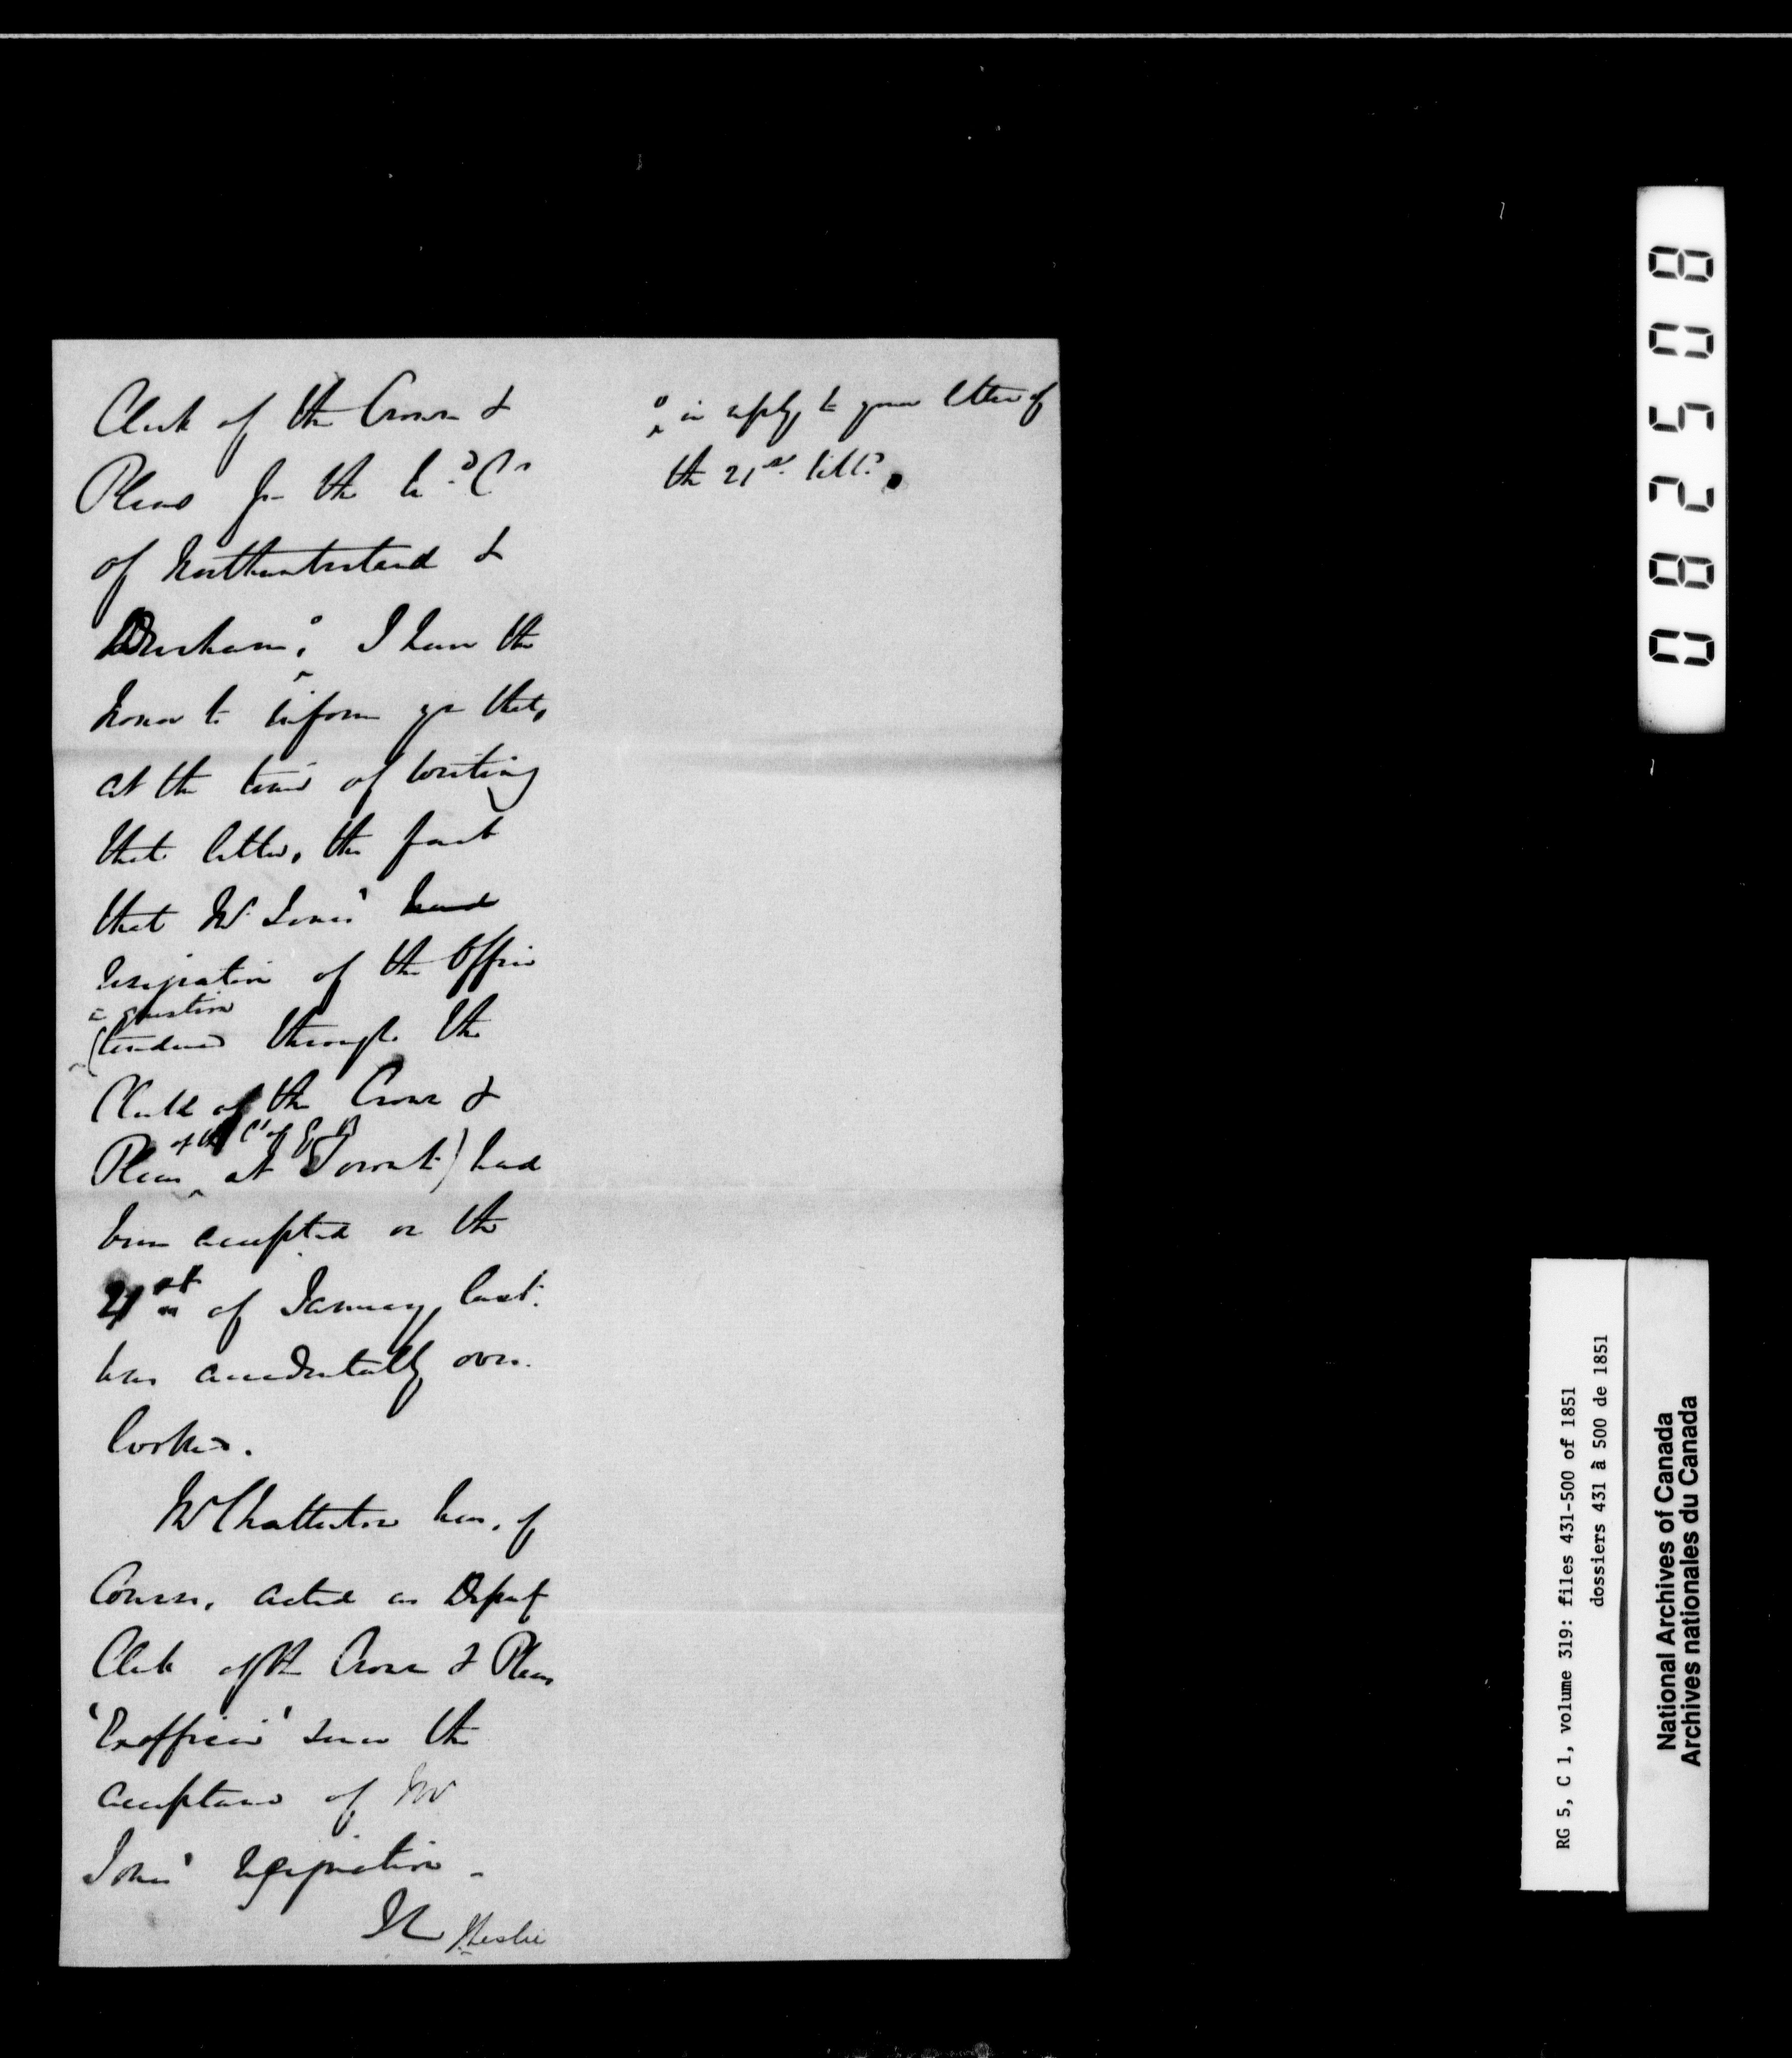 Clerk of the Crown &
Pleas for the U. Cs
of Northumberland &
Durham, I have the
honor to inform you that,
at the time of writing
that letter, the fact
that Mr Jones' had
resignation of the Office
in question
(tendered through the
Clerk of the Crown &
of the Ct of Q B
Pleas at Toronto) had
been accepted on the
21st of January last.
was accidentally over-
looked.
Mr Chatterton has, of
Course, acted as Deputy
Clerk of the Crown & Pleas
'Ex officio' since the
acceptance of Mr
Jones' resignation -
JL
J. Leslie
in reply to your letter of
the 21st ulto.
082508
RG 5, C 1, volume 319: files 431-500 of 1851
dossiers 431 à 500 de 1851
National Archives of Canada
Archives nationales du Canada